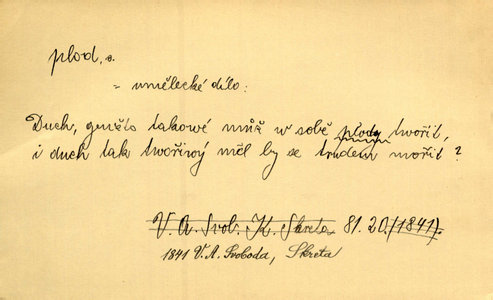 plod, s.
= umělecké dílo:
Duch, genž to takowé může w sobě plody twořit,
i duch tak twořiwý měl by se trudem mořit?
V. A. Svob. K. Skreta 81. 20. (1841).
1841 V. A. Svoboda, Skreta